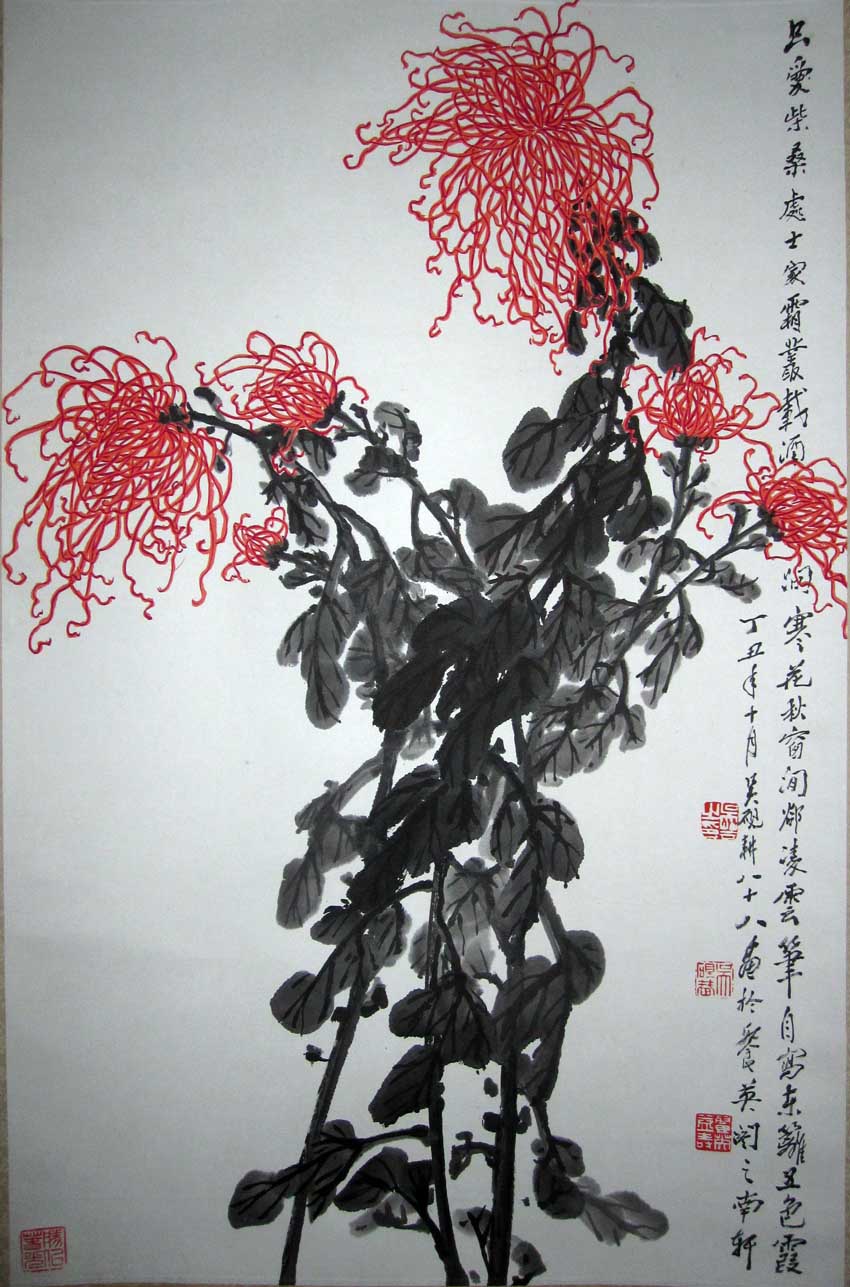 只愛柴桑處士家霜叢載酒
洞寒花秋窗閒卻凌雲筆自寫東籬五色霞
丁丑年十月吳硯耕八十八畫於餐英閣之南軒